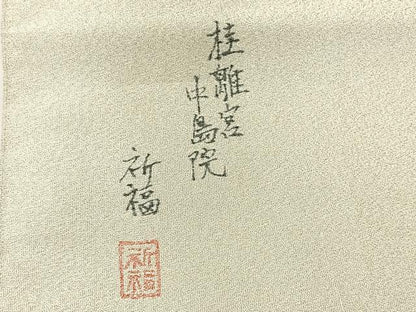 桂離宮
中島院
祈福
祈福